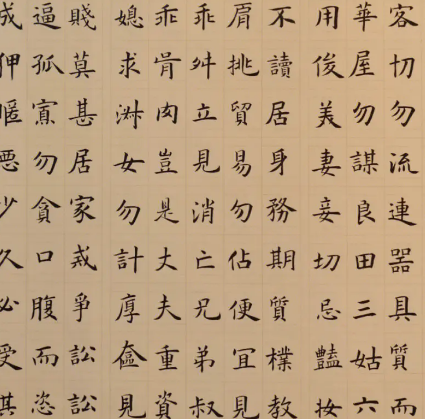 客切勿流連噐具質而
華屋勿謀良田三姑六
用俊美妻妾切忌豔妝
不讀居身務期質樸教
肩挑貿易勿佔便冝見
乖舛立見消亡兄弟叔
乖骨肉豈是丈夫重資
媳求淑女勿計厚奩見
賤莫甚居家戒爭訟訟
逼孤寡勿貪口腹而恣
成狎暱惡少久必受其